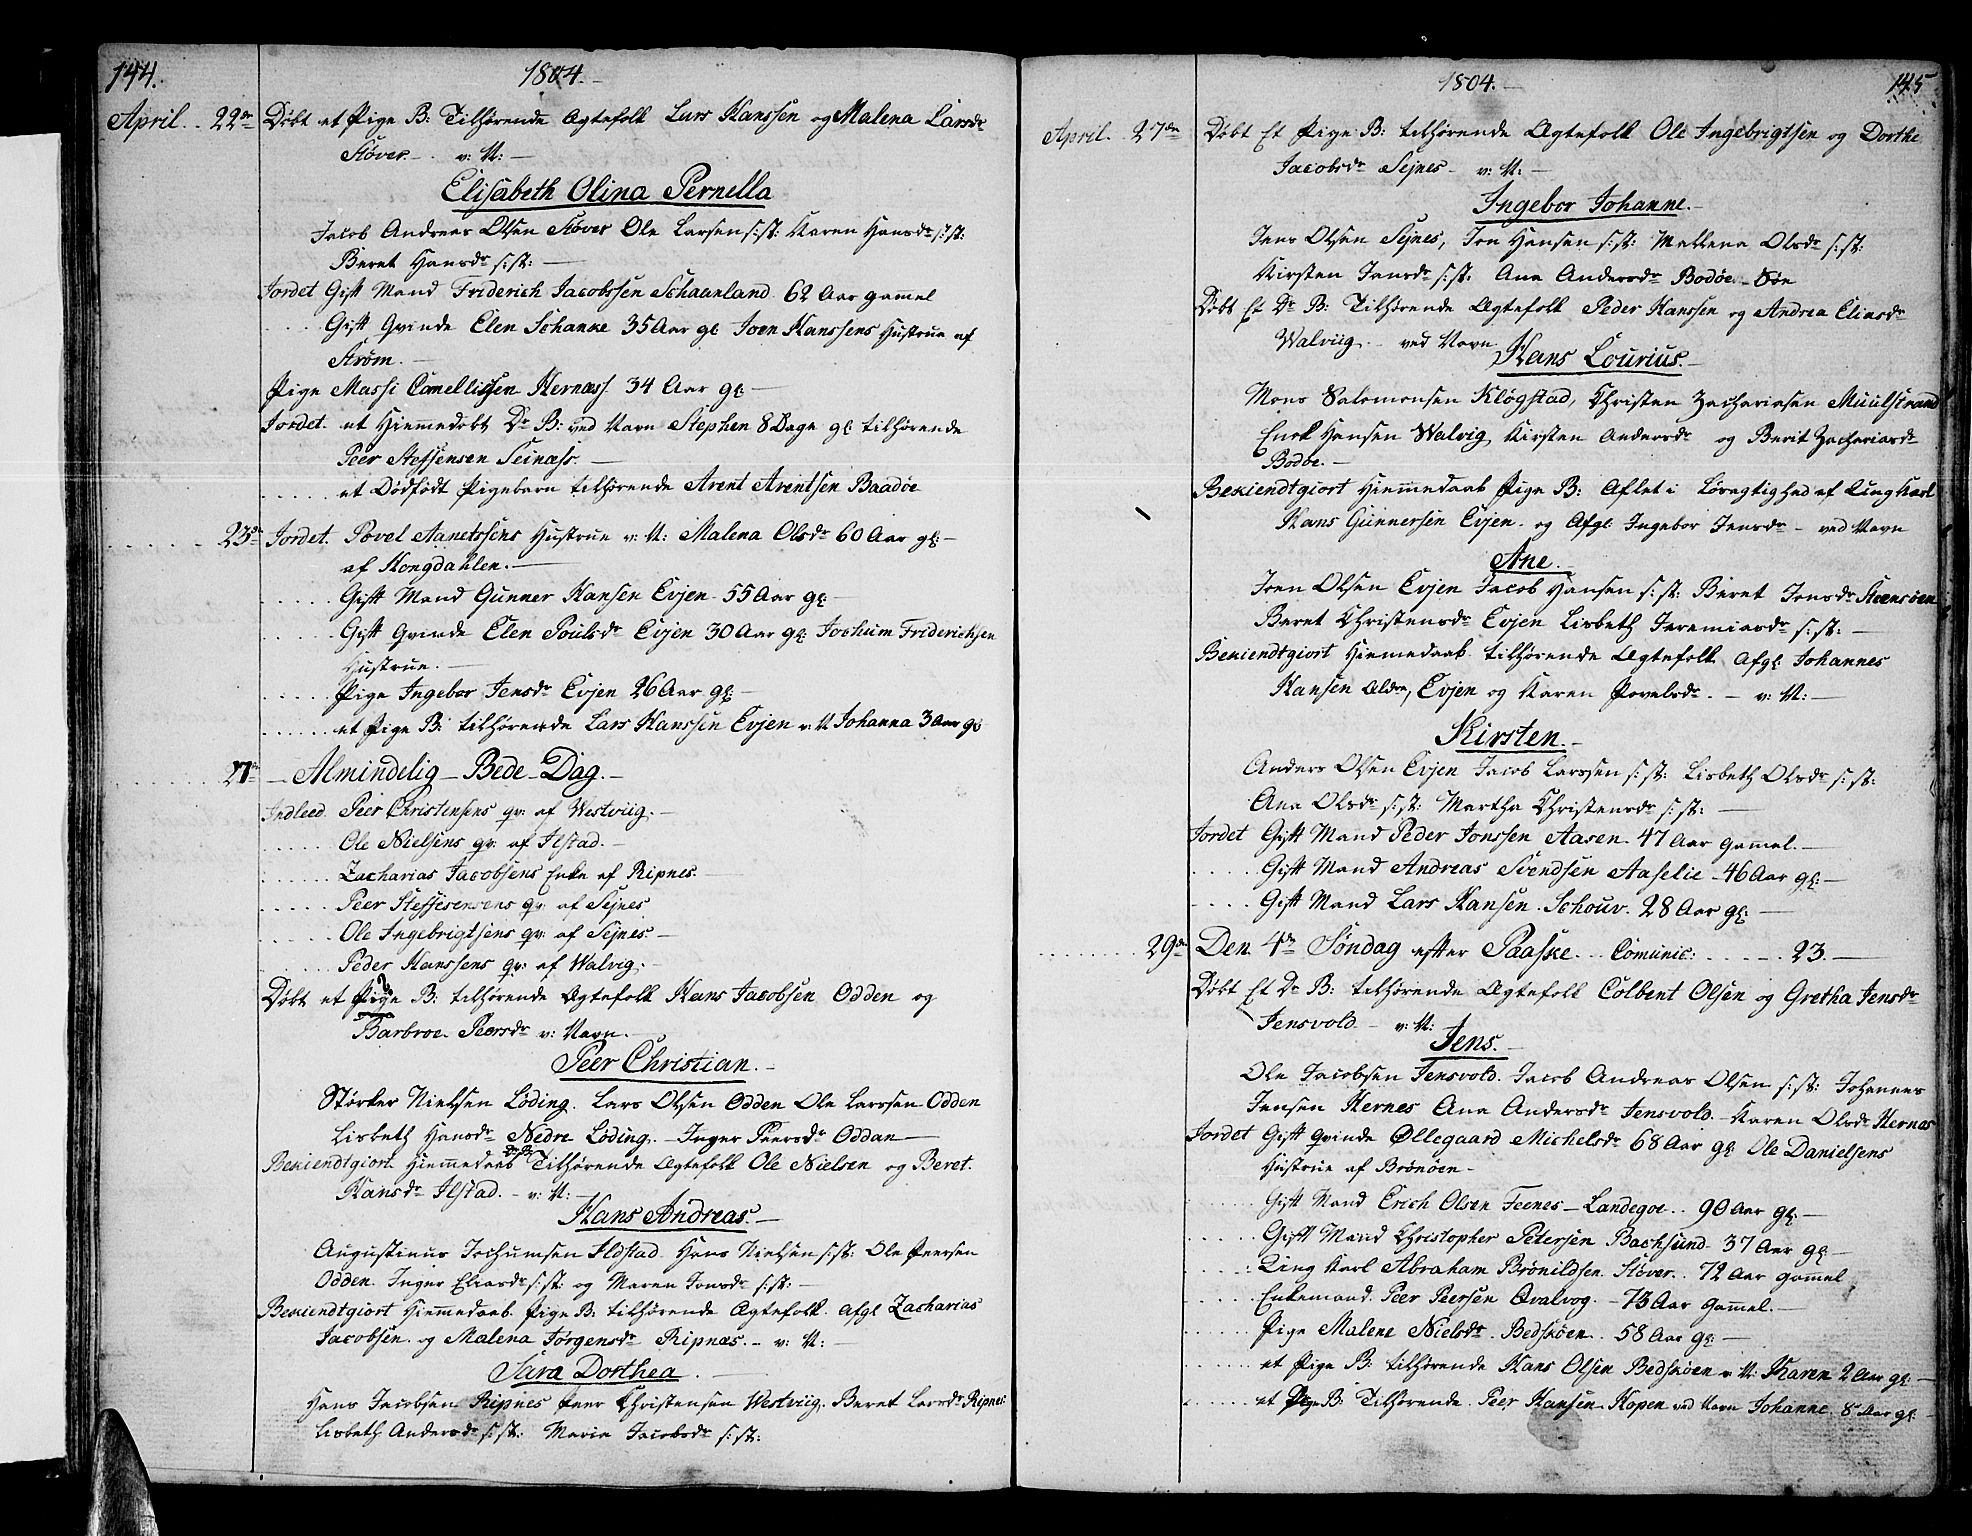 144.
1804.
April. 22de Döbt et Pige B: Tilhörende Ægtefolk Lars Hanssen og Malena Larsdr
Stöver. v: N:
Elisabeth Olina Pernella
Jacob Andreas Olsen Stöver Ole Larsen s: st: Karen Hansdr s: st:
Beret Hansdr s: st:
Jordet Gift Mand Friderich Jacobssen Schaanland 62 Aar gamel
Gift Qvinde Elen Schanke 35 Aar gl Joen Hanssens Hustrue af
Ström.
Pige Massi Hernæss 34 Aar gl
Jordet. et Hiemmedöbt Dr B: ved Navn Stephen 8 Dage gl tilhörende
Peer Steffensen Seinæss.
et Dödfödt Pigebarn tilhörende Arent Arentsen Baadöe
23de Jordet. Povel Aanetssens Hustrue v: N: Malena Olsdr 60 Aar gl:
af Kongdahlen.
Gift Mand Gunner Hansen Evjen 55 Aar gl:
Gift Qvinde Elen Poulsdr Evjen 30 Aar gl: Jochum Friderichsen
Hustrue.
Pige Ingebor Jensdr Evjen 26 Aar gl:
et Pige B: tilhörende Lars Hanssen Evjen v: N Johanna 3 Aar gl
27de Almindelig Bede Dag.
Indleed Peer Christensens qv: af Westviig.
Ole Nielsens qv: af Ilstad.
Zacharias Jacobsens Enke af Ripnes.
Peer Steffesensens qv: af Sejnes
Ole Ingebrigtsens qv: af Sejnes.
Peder Hanssens qv: af Walvig.
Döbt et Pige B: tilhörende Ægtefolk Hans Jacobsen Odden og
Barbroe Peersdr v: Navn.
Peer Christian.
Störker Nielsen Löding. Lars Olsen Odden Ole Larssen Odden
Lisbeth Hansdr Nedre Löding. Inger Peersdr Oddan
Bekiendtgiort Hiemmedaab Tilhörende Ægtefolk Ole Nielsen og Beret.
Hansdr Ilstad. v: N:
Hans Andreas.
Augustinus Jochumsen Ildstad Hans Nielsen s: st: Ole Peersen
Odden. Inger Eliasdr s: st: og Maren Jonsdr s: st:
Bekiendtgiort Hiemmedaab. Pige B: tilhörende Ægtefolk afgl Zacharias
Jacobsen og Malena Jörgensdr Ripnæs. v: N:
Sara Dorthea
Hans Jacobsen Ripnes Peer Christensen Westviig. Beret Larsdr Ripnes
Lisbeth Andersdr s: st: Maria Jacobsdr s: st:
1804.
145
April. 27de Döbt Et Pige B: tilhörende Ægtefolk Ole Ingebrigtsen og Dorthe
Jacobsdr Sejnes v: N:
Ingebor Johanne.
Jens Olsen Sejnes, Jon Hansen s: st: Mallena Olsdr s: st:
Kirsten Jensdr s: st: Ana Andersdr Bodöe.
Döbt Et Dr B: Tilhörende Ægtefolk Peder Hanssen og Andrea Eliasdr
Walviig. ved Navn
Hans Lourius.
Mons Salomonsen Klögstad, Christen Zachariasen Muulstrand
Hansen Walvig Kirsten Andersdr og Berit Zachariasdr
Bodöe.
Bekiendtgiort Hiemmedaab Pige B: Aflet i Lösagtighed af Ungkarl
Hans Gunnersen Evjen og Afgl: Ingebor Jensdr ved Navn
Ane.
Joen Olsen Evjen Jacob Hansen s: st: Beret Jonsdr
Beret Christensdr Evjen Lisbeth Jeremiasdr s: st:
Bekiendtgiort Hiemmedaab tilhörende Ægtefolk Afgl: Johannes
Hansen Evjen og Karen Povelsdr. v: N:
Kirsten.
Anders Olsen Evjen Jacob Larssen s: st: Lisbeth Olsdr s: st:
Ana Olsdr s: st: Martha Christensdr s: st:
Jordet Gift Mand Peder Jonssen Aasen 47 Aar gamel.
Gift Mand Andreas Svendsen Aaselie 46 Aar gl:
Gift Mand Lars Hansen Schouv. 28 Aar gl:
29de Den 4de Söndag efter Paaske. Comunic: 23
Döbt Et Dr B: tilhörende Ægtefolk Colbent Olsen og Gretha Jensdr
Jensvold v: N:
Jens.
Ole Jacobsen Jensvold. Jacob Andreas Olsen s: st: Johannes
Jensen Hernes Ana Andersdr Jensvold. Karen Olsdr Hernæs
Jordet Gift Qvinde Öllegaard Michelsdr 68 Aar gl: Ole Danielsens
Hustrue af Brönöen
Gift Mand Erich Olsen Feenes Landegoe. 90 Aar gl:
Gift Mand Christopher Petersen Bachsund 37 Aar gl:
Ung Karl Abraham Brönildsen Stöver. 72 Aar gammel
Enkemand Peer Peersen Qvalvog 73 Aar Gammel.
Pige Malene Nielsdr. Bedsköen. 58 Aar gl:
et Pige B: tilhörende Hans Olsen Bedsköen v: N: Karen 2 Aar gl:
et Pige B: Tilhörende Peer Hansen Kopen ved Navn Johanne 8 Aar gl.